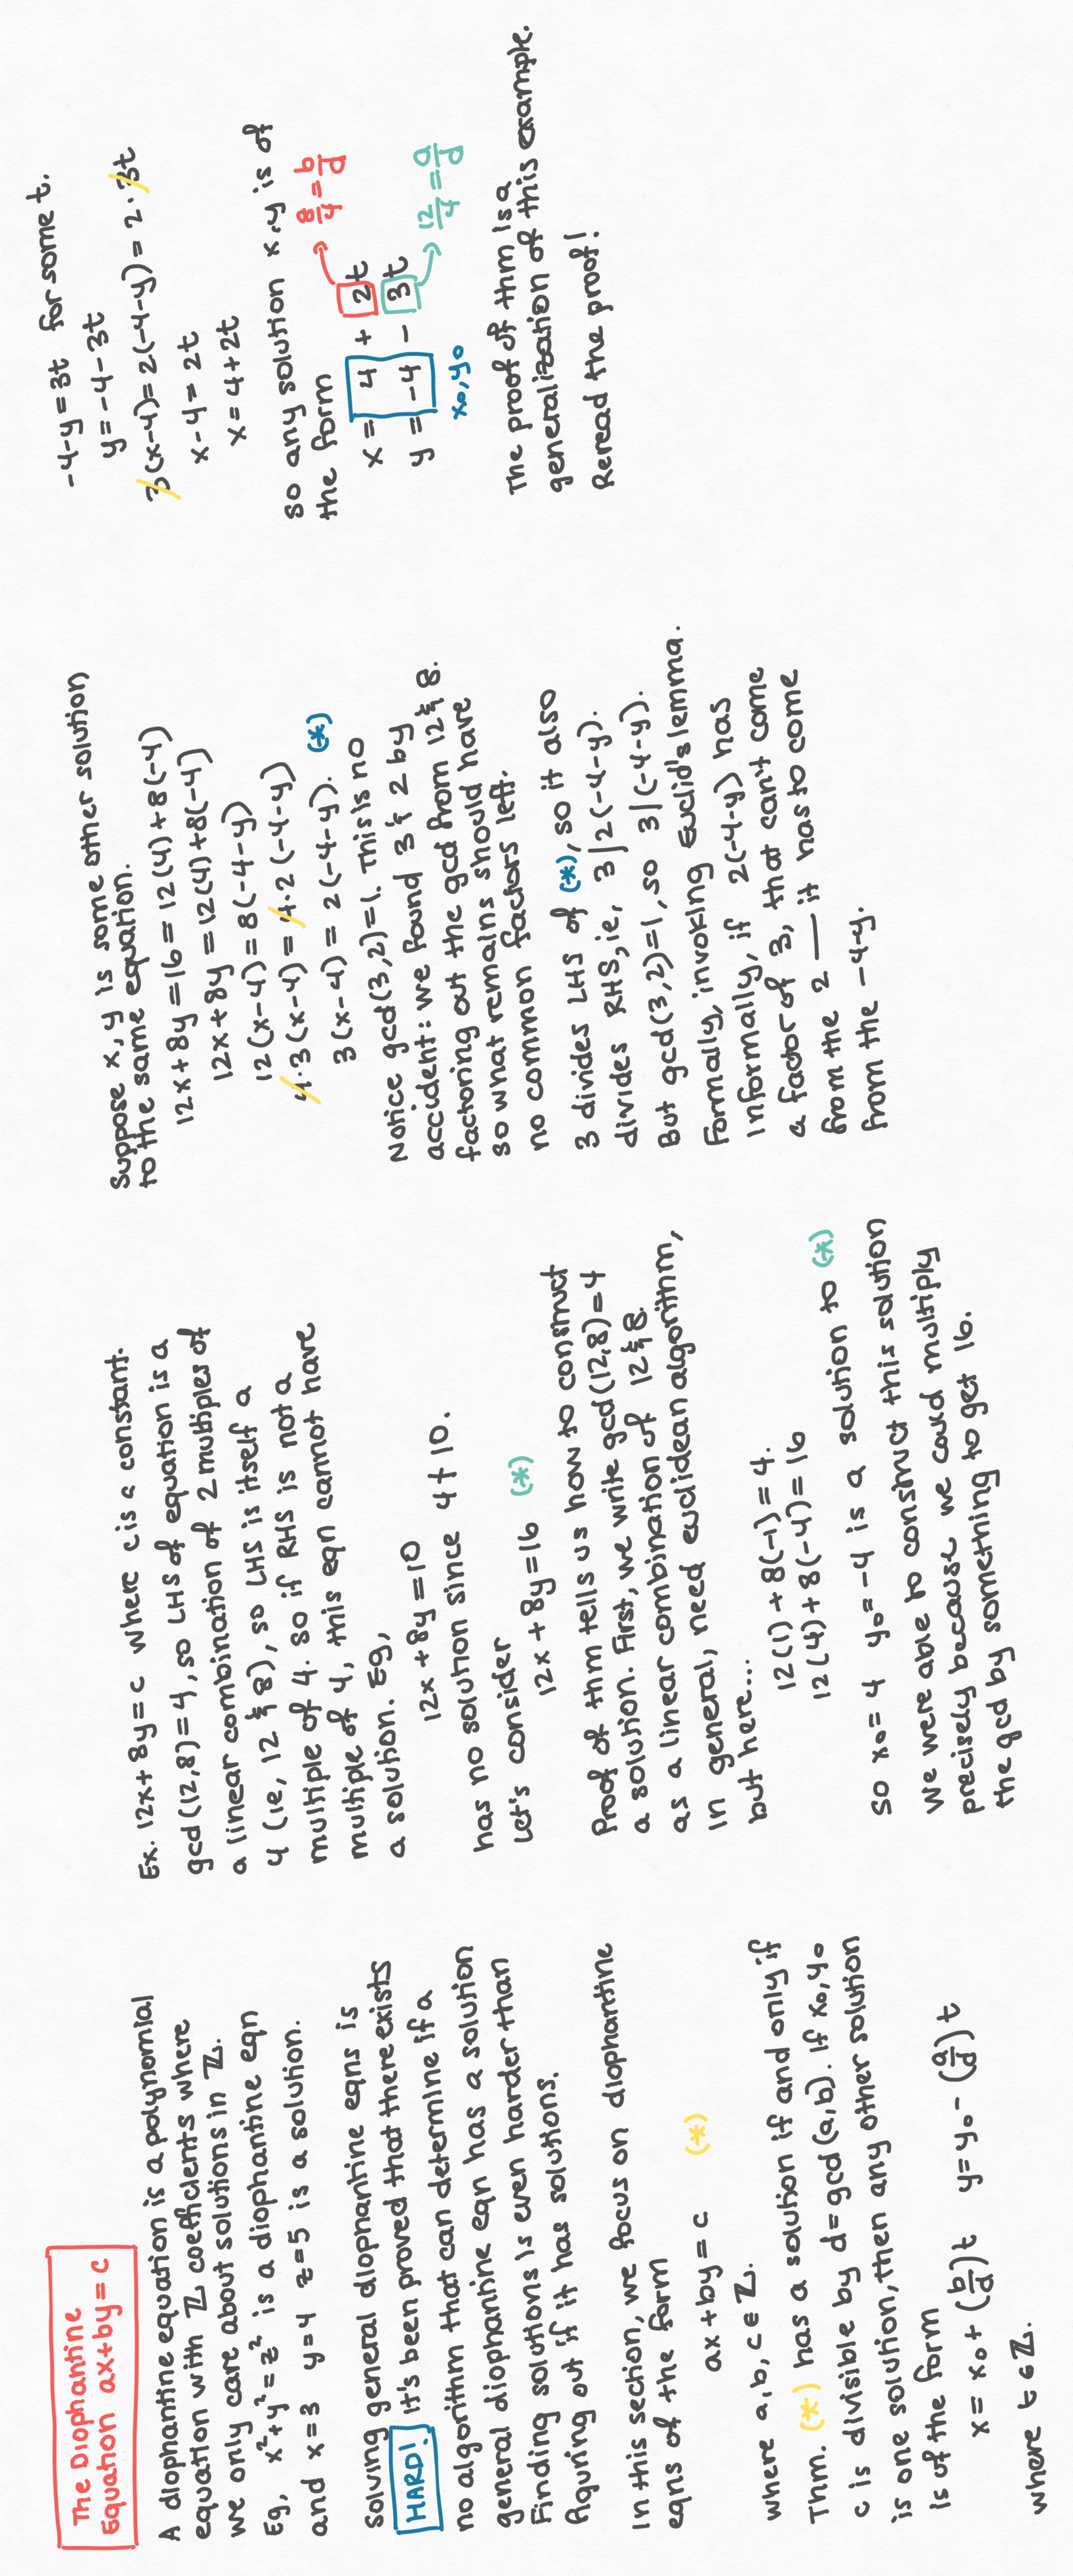 The Diophantine
Equation ax+by=c
A diophantine equation is a polynomial
equation with ℤ coefficients where
we only care about solutions in ℤ.
Eg, x²+y²=z² is a diophantine eqn
and x=3 y=4 z=5 is a solution.
Solving general diophantine eqns is
HARD! It's been proved that there exists
no algorithm that can determine if a
general diophantine eqn has a solution
Finding solutions is even harder than
figuring out if it has solutions.
In this section, we focus on diophantine
eqns of the form
ax+by=c (*)
where a,b,c∈ℤ.
Thm. (*) has a solution if and only if
c is divisible by d=gcd(a,b). If x₀,y₀
is one solution, then any other solution
is of the form
x= x₀+(b/d)t y=y₀-(a/d)t
where t∈ℤ.
Ex. 12x+8y=c where c is a constant.
gcd(12,8)=4, so LHS of equation is a
a linear combination of 2 multiples of
4 (ie, 12 & 8), so LHS is itself a
multiple of 4. So if RHS is not a
multiple of 4, this eqn cannot have
a solution. Eg,
12x+8y=10
has no solution since 4∤10.
Let's consider
12x+8y=16 (*)
Proof of thm tells us how to construct
a solution. First, we write gcd(12,8)=4
as a linear combination of 12 & 8.
In general, need euclidean algorithm,
but here...
12(1)+8(-1)=4.
12(4)+8(-4)=16
So x₀=4 y₀=-4 is a solution to (*)
We were able to construct this solution
precisely because we could multiply
the gcd by something to get 16.
Suppose x,y is some other solution
to the same equation.
12x+8y=16=12(4)+8(-4)
12x+8y=12(4)+8(-4)
12(x-4)=8(-4-y)
4·3(x-4)=4·2(-4-y)
3(x-4)=2(-4-y). (*)
Notice gcd(3,2)=1. This is no
accident: we found 3 & 2 by
factoring out the gcd from 12 & 8.
So what remains should have
no common factors left.
3 divides LHS of (*), so it also
divides RHS, ie, 3|2(-4-y).
But gcd(3,2)=1, so 3|(-4-y).
Formally, invoking Euclid's lemma.
Informally, if 2(-4-y) has
a factor of 3, that can't come
from the 2 — it has to come
from the -4-y.
-4-y=3t for some t.
y=-4-3t
3(x-4)=2(-4-y)=2·3t
x-4=2t
x=4+2t
So any solution x,y is of
the form
8/4=b/d
x= 4 + 2t
y= -4 - 3t
12/4=a/d
x₀,y₀
The proof of thm is a
generalization of this example.
Reread the proof!